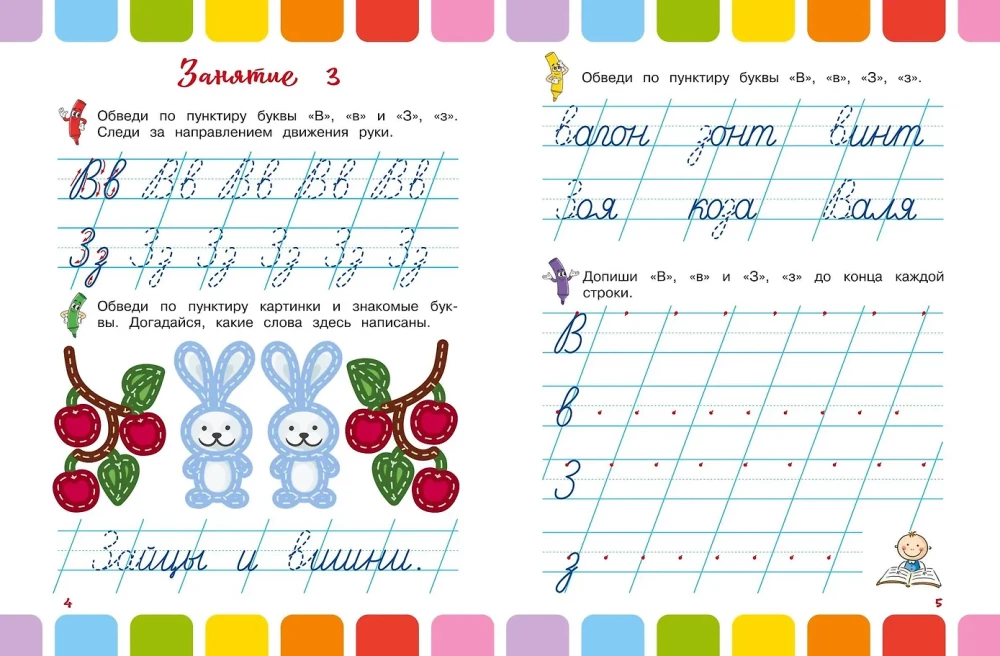 Занятие 3
Обведи по пунктиру буквы «В», «в» и «З», «з».
Следи за направлением движения руки.
Вв Вв Вв Вв Вв
Зз Зз Зз Зз Зз Зз
Обведи по пунктиру картинки и знакомые бук-
вы. Догадайся, какие слова здесь написаны.
Зайцы и вишни.
4
Обведи по пунктиру буквы «В», «в», «З», «з».
вагон зонт винт
Зоя коза Валя
Допиши «В», «в» и «З», «з» до конца каждой
строки.
В
в
З
з
5